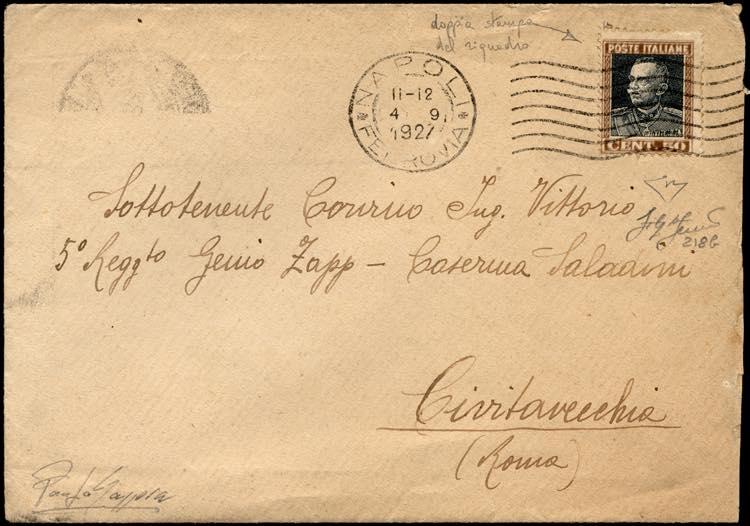 doppia stampa
del riquadro
POSTE ITALIANE
CENT. 50
NAPOLI
11-12
4 9
1927
FERROVIA
Sottotenente Ing. Vittorio
5° Regg.to Genio Zapp - Caserma Saladini
218G
Civitavecchia
(Roma)